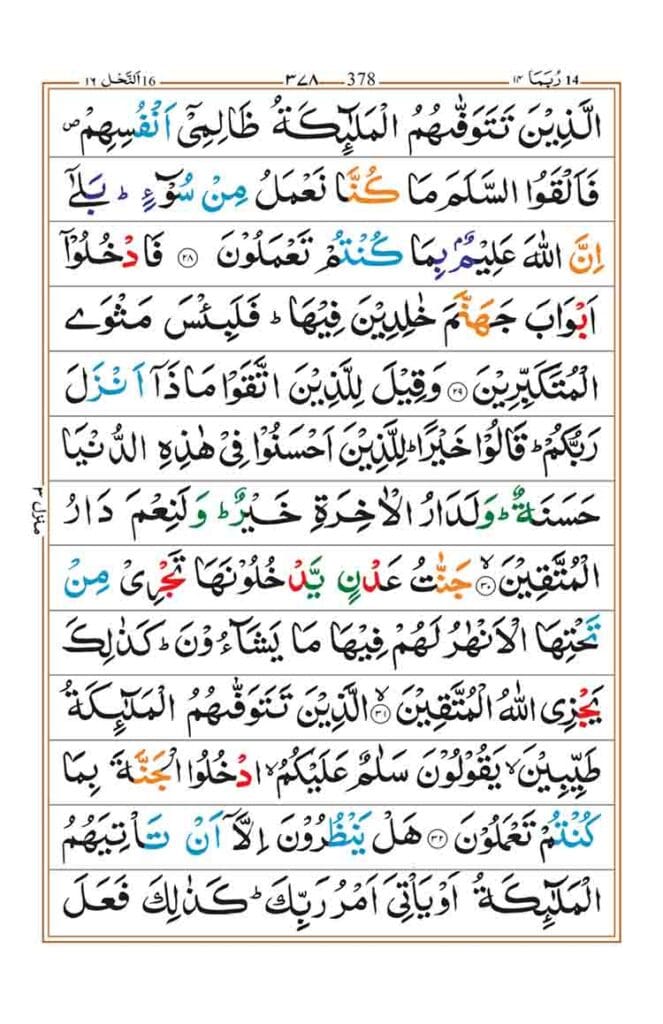 16 اَلنَّحْل ۱۶ — ۳۷۸ — 378 — 14 رُبَمَا ۱۴
الَّذِيْنَ تَتَوَفّٰىهُمُ الْمَلٰٓئِكَةُ ظَالِمِىْٓ اَنْفُسِهِمْ ص
فَاَلْقَوُا السَّلَمَ مَا كُنَّا نَعْمَلُ مِنْ سُوْٓءٍ ؕ بَلٰٓى
اِنَّ اللّٰهَ عَلِيْمٌۢ بِمَا كُنْتُمْ تَعْمَلُوْنَ ۲۸ فَادْخُلُوْٓا
اَبْوَابَ جَهَنَّمَ خٰلِدِيْنَ فِيْهَا ؕ فَلَبِئْسَ مَثْوَى
الْمُتَكَبِّرِيْنَ ۲۹ وَقِيْلَ لِلَّذِيْنَ اتَّقَوْا مَاذَآ اَنْزَلَ
رَبُّكُمْ ؕ قَالُوْا خَيْرًا ؕ لِلَّذِيْنَ اَحْسَنُوْا فِىْ هٰذِهِ الدُّنْيَا
حَسَنَةٌ ؕ وَلَدَارُ الْاٰخِرَةِ خَيْرٌ ؕ وَلَنِعْمَ دَارُ
الْمُتَّقِيْنَ ۙ ۳۰ جَنّٰتُ عَدْنٍ يَّدْخُلُوْنَهَا تَجْرِىْ مِنْ
تَحْتِهَا الْاَنْهٰرُ لَهُمْ فِيْهَا مَا يَشَآءُوْنَ ؕ كَذٰلِكَ
يَجْزِى اللّٰهُ الْمُتَّقِيْنَ ۙ ۳۱ الَّذِيْنَ تَتَوَفّٰىهُمُ الْمَلٰٓئِكَةُ
طَيِّبِيْنَ ۙ يَقُوْلُوْنَ سَلٰمٌ عَلَيْكُمُ ۙ ادْخُلُوا الْجَنَّةَ بِمَا
كُنْتُمْ تَعْمَلُوْنَ ۳۲ هَلْ يَنْظُرُوْنَ اِلَّآ اَنْ تَاْتِيَهُمُ
الْمَلٰٓئِكَةُ اَوْ يَاْتِىَ اَمْرُ رَبِّكَ ؕ كَذٰلِكَ فَعَلَ
منزل ۳